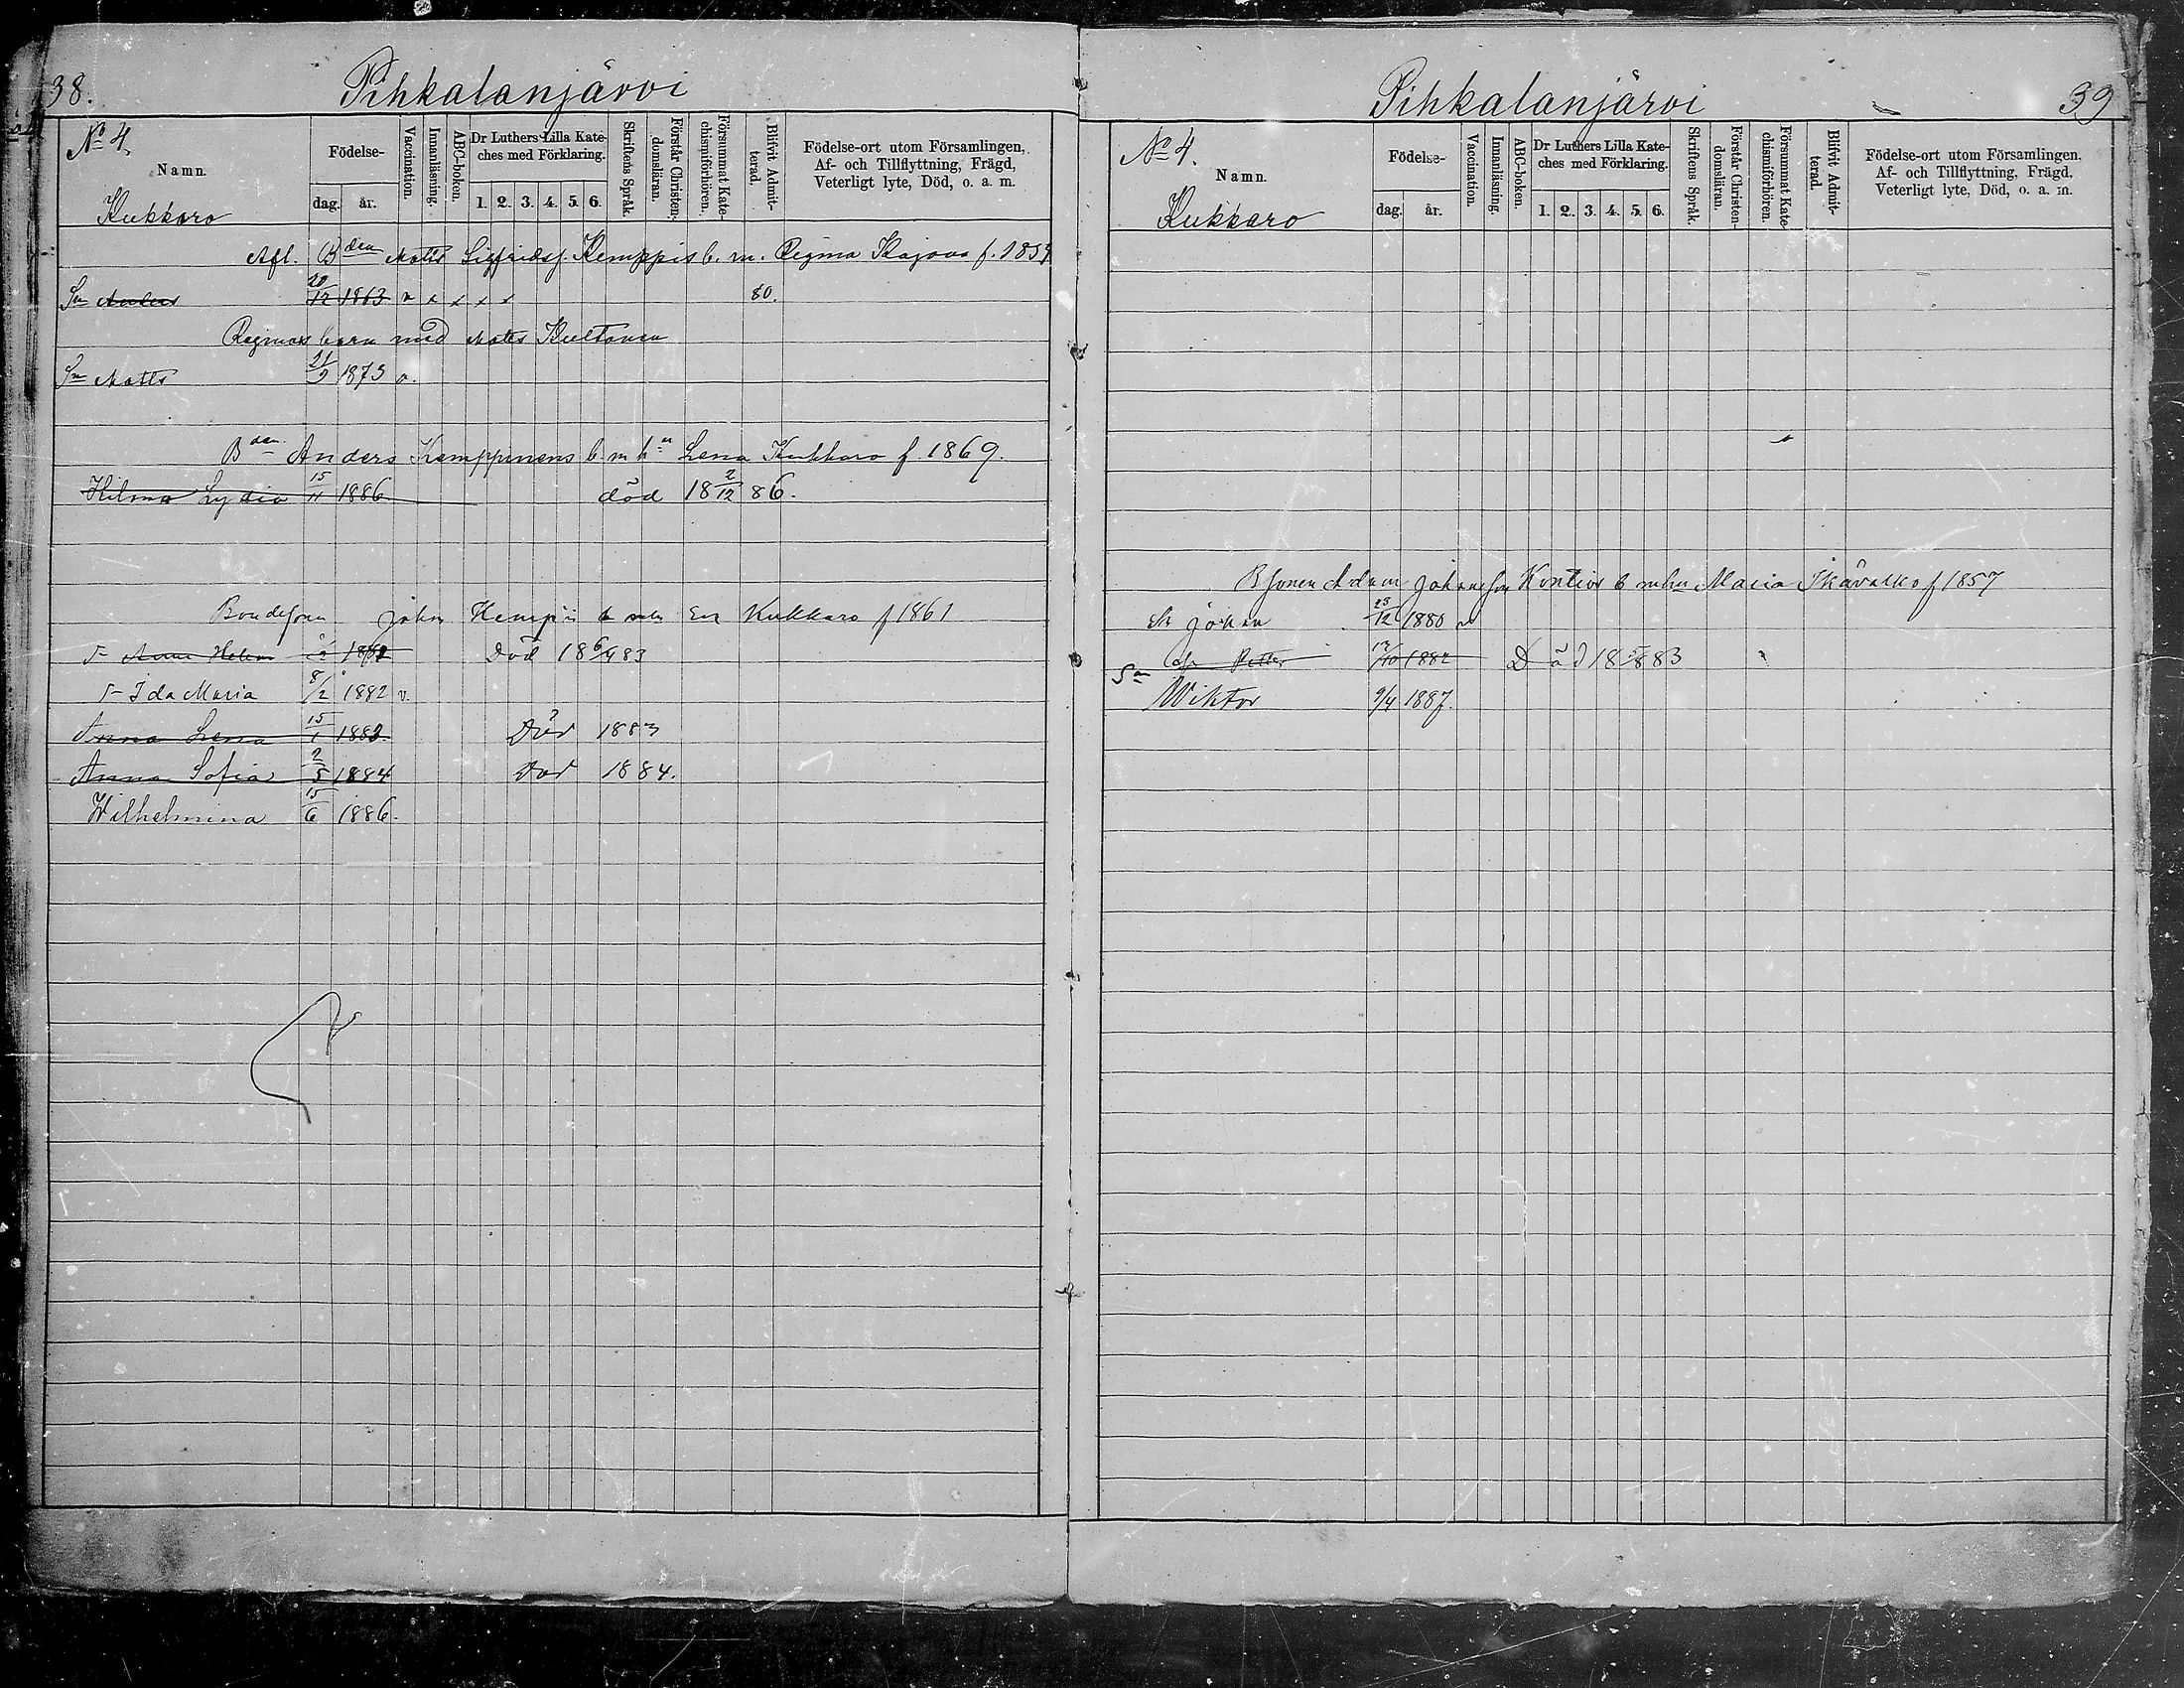 38.
Pihkalanjärvi
No 4.
Namn.
Kukkaro
Födelse-
dag. år.
Vaccination.
Innanläsning.
ABC-boken.
Dr Luthers Lilla Kate-
ches med Förklaring.
1. 2. 3. 4. 5. 6.
Skriftens Språk.
Förstår Christen-
domsläran.
Försummat Kate-
chismiförhören.
Blifvit Admit-
terad.
Födelse-ort utom Församlingen,
Af- och Tillflyttning, Frägd,
Veterligt lyte, Död, o. a. m.
Afl. Bden Matts Sigfridss. Kemppis b. m. Regina
Sn Anders 12 1863 v x x x x 80.
Reginas barn med Matts Kultanen
Sn Matts 21/9 1873 v.
Bden Anders Kemppinens b m hn Lena Kukkaro f. 1869.
Hilma Lydia 15/11 1886 död 18 2/12 86.
Bondesonen Johan Kempii b mhn Eva Kukkaro f 1861
Anna Helena Död 18 6/4 83
Ida Maria 8/2 1882 v.
Anna Lena 15/1 1883. Död 1883
Anna Sofia 2/5 1884 Död 1884.
Wilhelmina 15/6 1886.
Pihkalanjärvi
39
No 4.
Namn.
Kukkaro
Födelse-
dag. år.
Vaccination.
Innanläsning.
ABC-boken.
Dr Luthers Lilla Kate-
ches med Förklaring.
1. 2. 3. 4. 5. 6.
Skriftens Språk.
Förstår Christen-
domsläran.
Försummat Kate-
chismiförhören.
Blifvit Admit-
terad.
Födelse-ort utom Församlingen.
Af- och Tillflyttning, Frägd.
Veterligt lyte, Död, o. a. m.
Bsonen Adam Johansson Kontios b mhn Maria f 1857
Johan 23/12 1880 v
Petter 17/10 1882 Död 18 5/8 83
Sn Wiktor 9/4 1887.